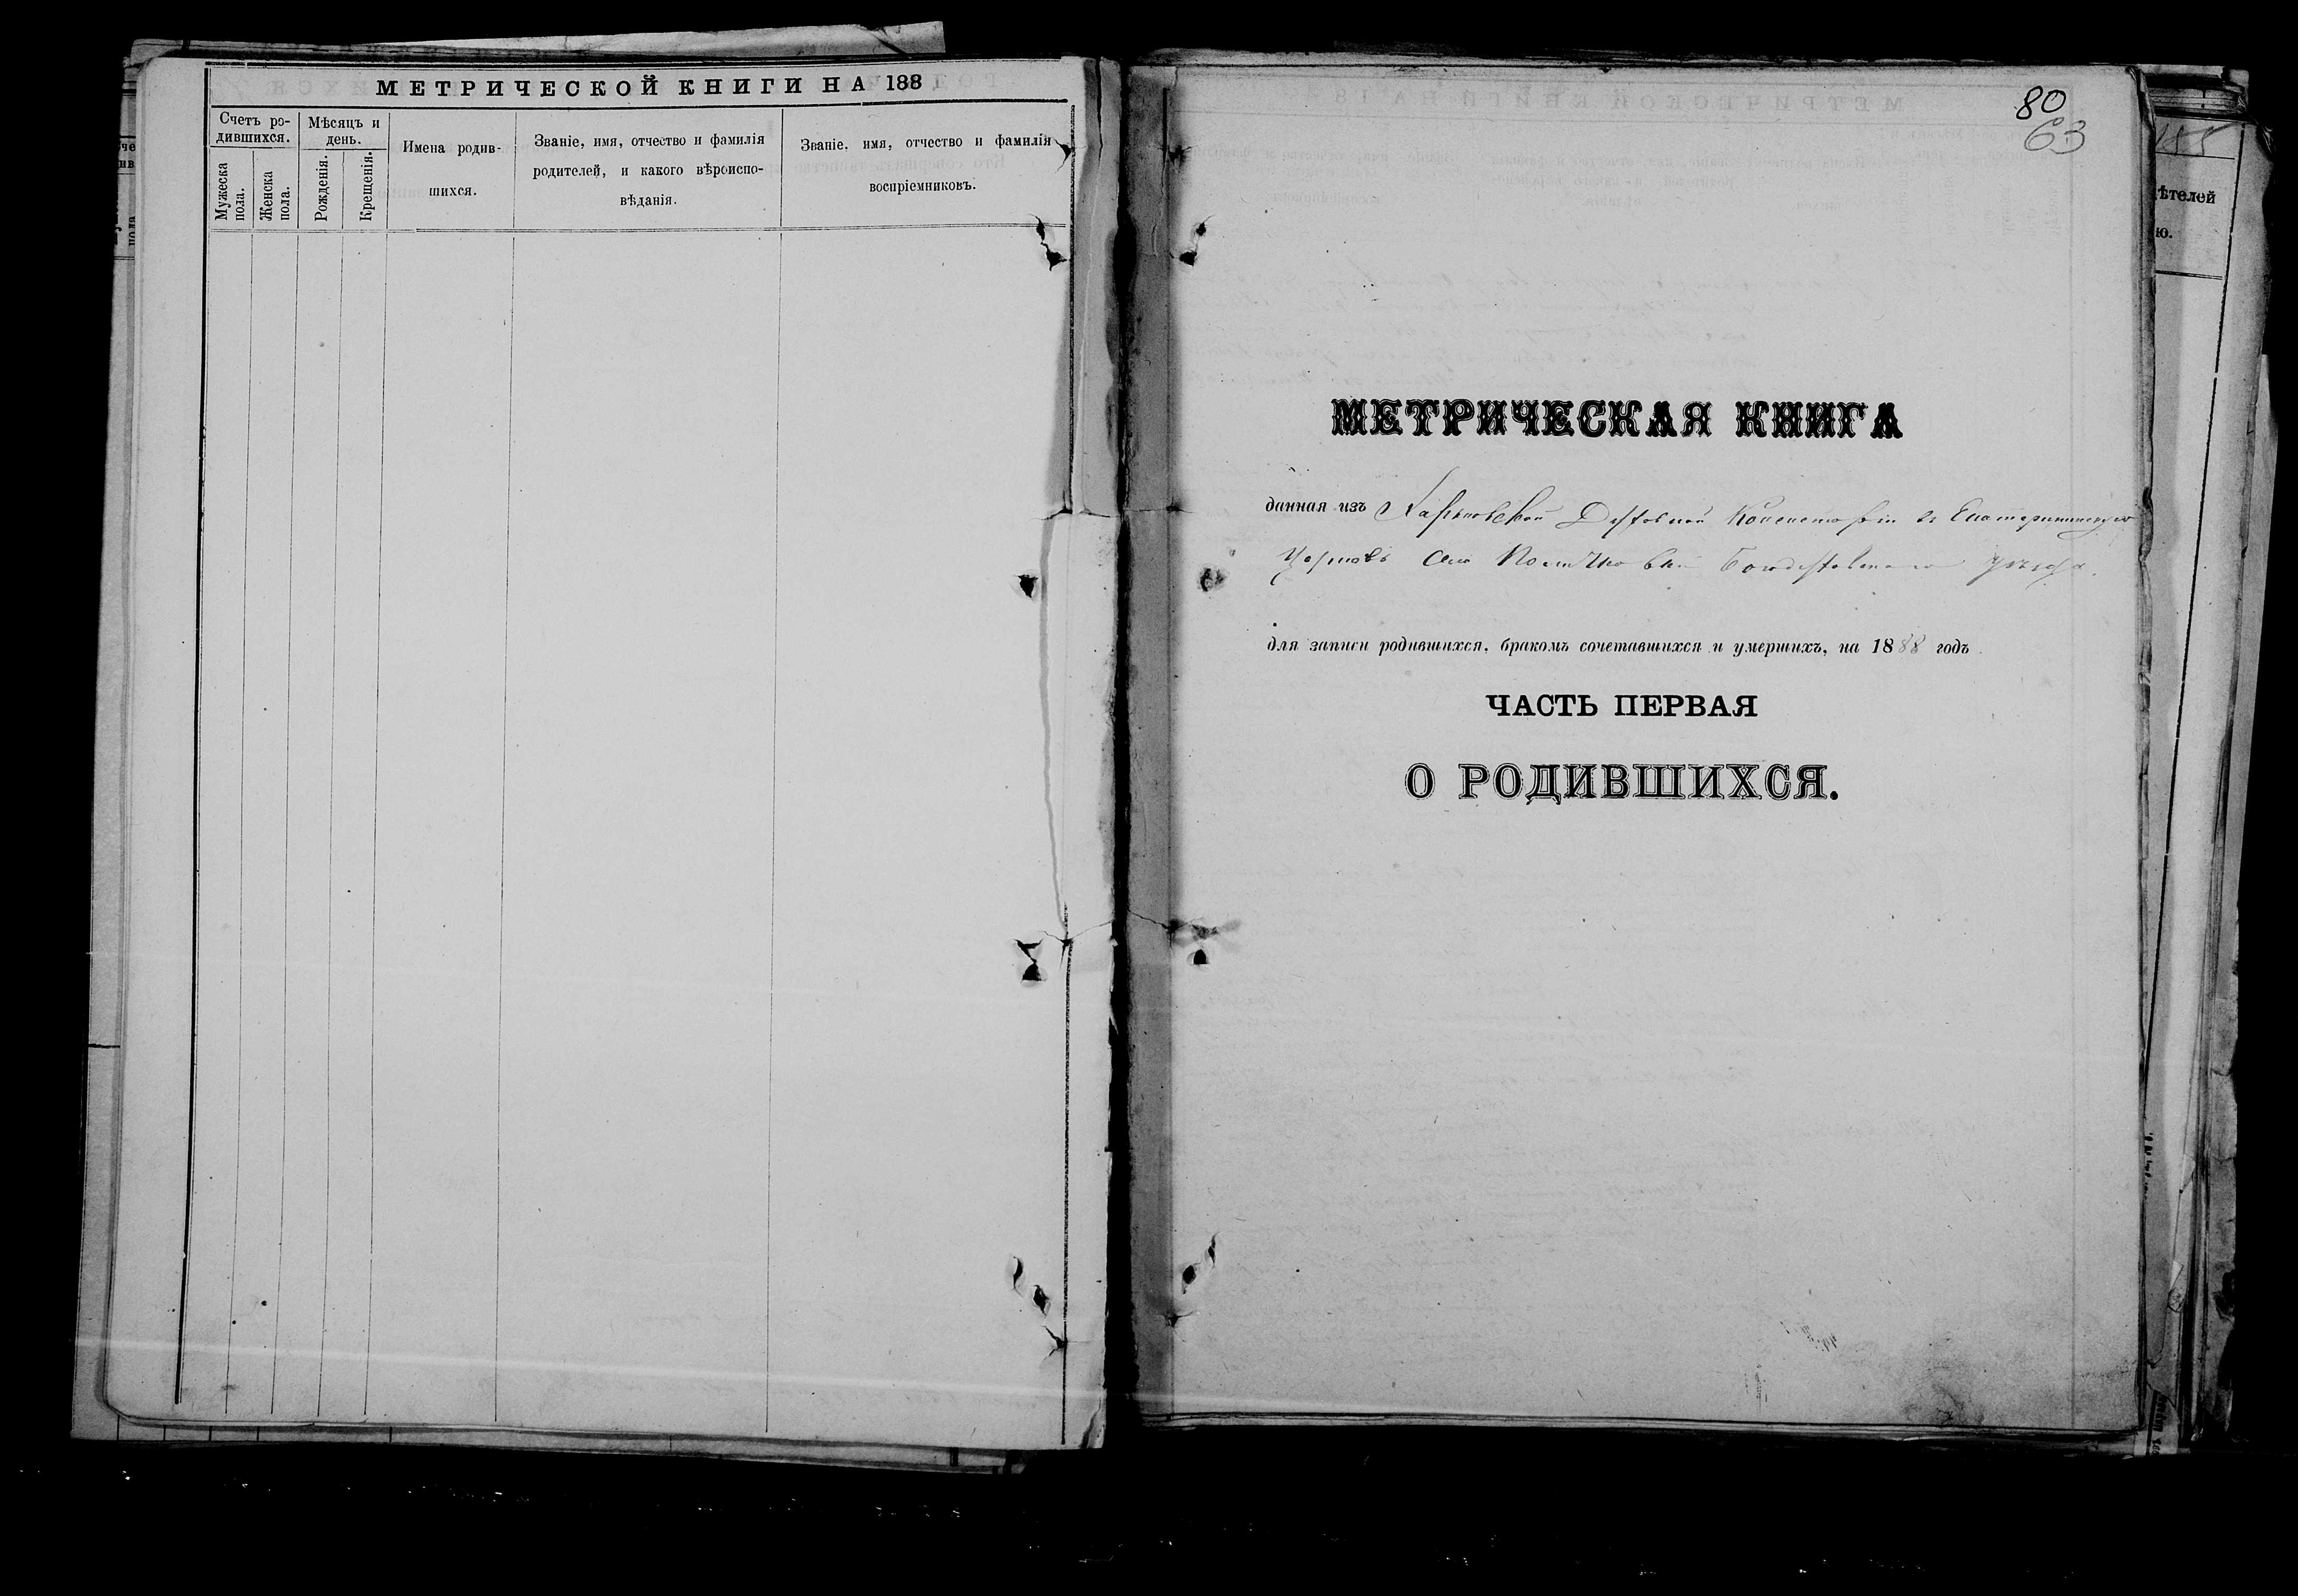 МЕТРИЧЕСКОЙ КНИГИ НА 188
Счетъ ро-
дившихся.
Мужеска
пола.
Женска
пола.
Мѣсяцъ и
день.
Рожденія.
Крещенія.
Имена родив-
шихся.
Званіе, имя, отчество и фамилія
родителей, и какого вѣроиспо-
вѣданія.
Званіе, имя, отчество и фамилія
воспріемниковъ.
80
63
МЕТРИЧЕСКАЯ КНИГА
данная изъ Харьковской Духовной Консисторіи въ Екатерининскую
Церковь села Богодуховскаго уѣзда.
для записи родившихся, бракомъ сочетавшихся и умершихъ, на 1888 годъ.
ЧАСТЬ ПЕРВАЯ
О РОДИВШИХСЯ.
ѣтелей
ю.